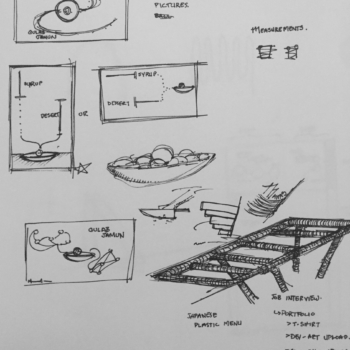 PICTURES.
GULAB
JAMUN
MEASUREMENTS.
SYRUP
DESERT
OR
SYRUP
DESERT
GULAB
JAMUN
JAPANESE
PLASTIC MENU
JOB INTERVIEW.
PORTFOLIO
>T-SHIRT
>DAY-ART UPLOAD.